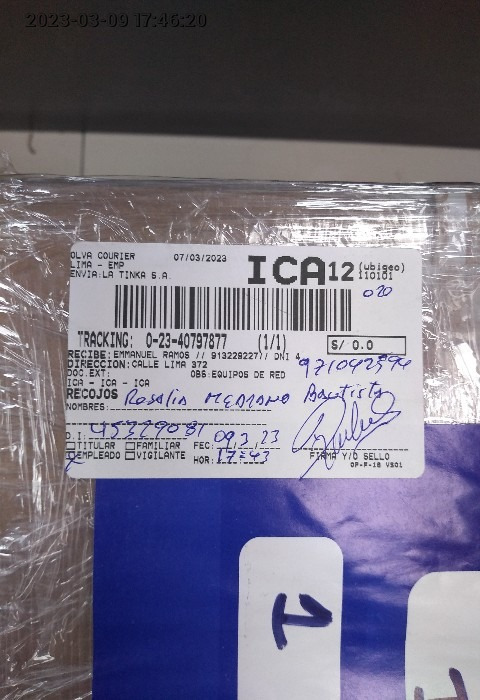 2023-03-09 17:46:20
OLVA COURIER 07/03/2023 ICA12 (ubigeo)
LIMA - EMP 110101
ENVIA:LA TINKA S.A.
020
TRACKING: 0-23-40797877 (1/1) S/ 0.0
RECIBE: EMMANUEL RAMOS // 913228227// DNI 4
DIRECCION:CALLE LIMA 372 971042594
DOC.EXT: OBS:EQUIPOS DE RED
ICA - ICA - ICA
RECOJOS Rosalia Medrano Bautista
NOMBRES:
D.I: 45329081 09,3,23
TITULAR FAMILIAR FEC:
X EMPLEADO VIGILANTE HOR: 17:43 FIRMA Y/O SELLO
OP-F-18 VS01
1